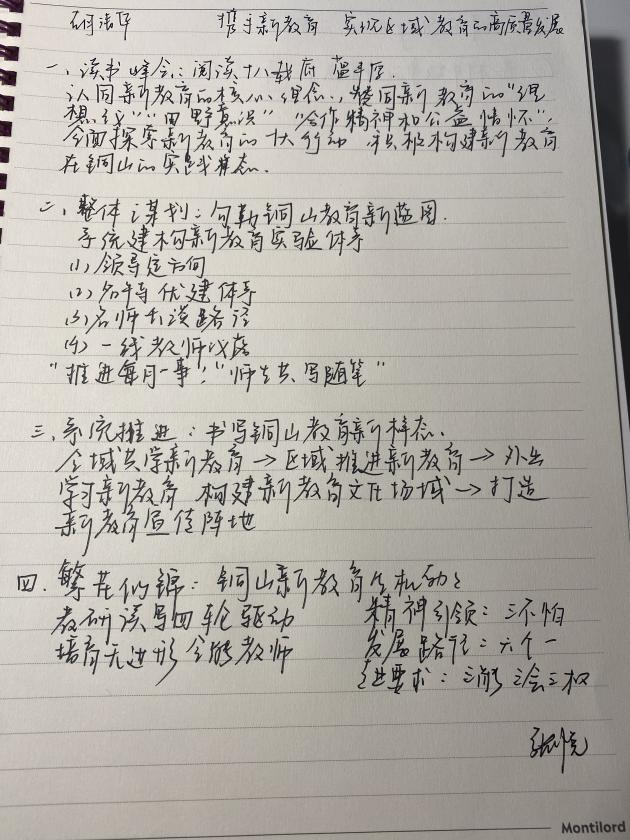 携手新教育 实现区域教育的高质量发展
一、读书峰会：阅读十八载府
认同新教育的核心理念，赞同新教育的"理
想线""田野意识""合作精神和公益情怀"，
全面探索新教育的十大行动 积极构建新教育
在铜山的实践样态.
二、整体谋划：勾勒铜山教育新蓝图.
系统建构新教育实验体系
(1) 领导定方向
(2) 优建体系
(3) 名师大谈路径
(4) 一线教师收获
"推进每月一事"："师生共写随笔"
三、系统推进：书写铜山教育新样态.
全域共学新教育→区域推进新教育→外出
学习新教育 构建新教育文化场域→打造
新教育宣传阵地
四、繁花似锦：铜山新教育生机勃勃
教研读写四轮驱动 精神引领：三不怕
培育无边形全能教师 发展路径：六个一
要求：三能三会三权
Montilord